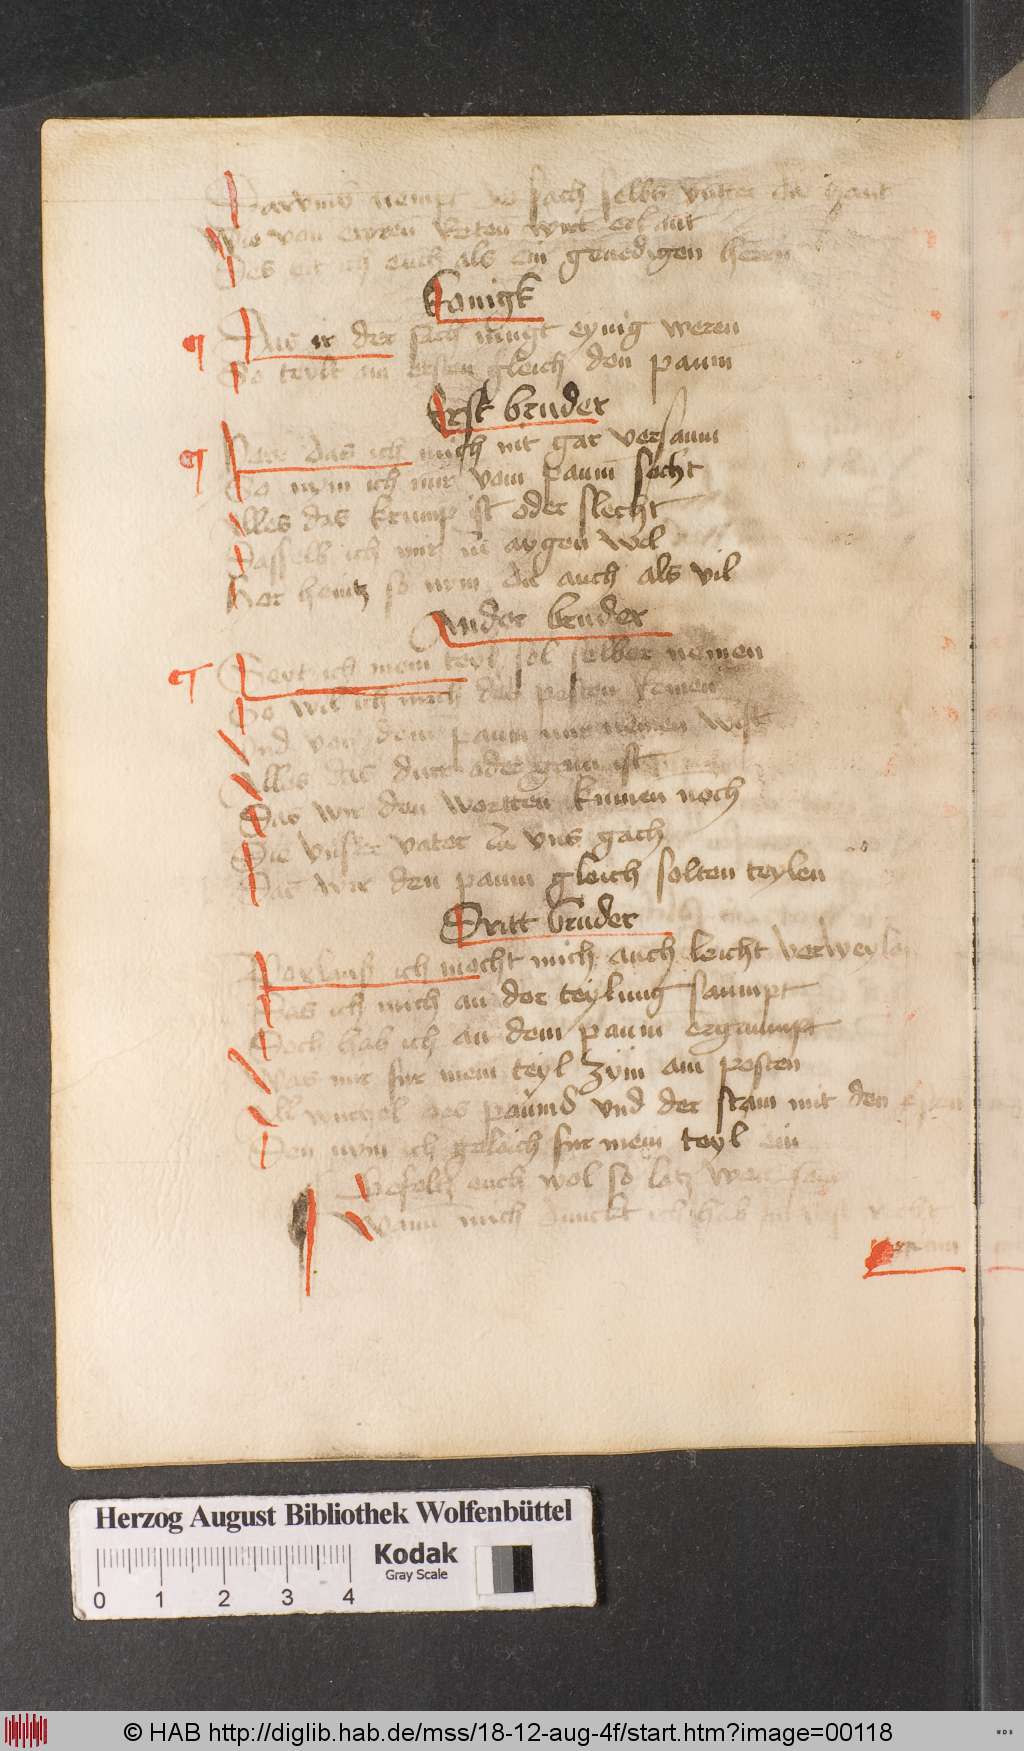 Darumb nempt die sach selbs unter die hant
Wie von ewren reten wirt erkant
Des pit ich euch als ein genedigen herrn
Konigk
Das ir der sach mügt eynig weren
So teylt am ersten gleich den paum
Erst bruder
das ich mich nit gar versaum
So nym ich mir vom paum secht
Alles das krump ist oder slecht
Dasselb ich mir zu aygen wel
Hor heintz so nym dir auch als vil
Ander bruder
Seyt ich mein teyl sol selber nemen
So wil ich mich des pesten remen
Und von dem paum mir nemen wist
Alles das durr oder grun ist
Das wir den wortten kumen noch
Die unser vater zu uns gach
Das wir den paum gleich solten teylen
Dritt bruder
ich mocht mich auch leicht verweylen
Das ich mich an der teylung saumpt
Doch hab ich an dem paum ergaumpt
Was mir fur mein teyl zym am pesten
All wurzel des paumß und der stam mit den esten
Den nym ich geleich fur mein teyl ein
euch wol so latz war sein
Wann mich dunckt ich hab
Herzog August Bibliothek Wolfenbüttel
Kodak
Gray Scale
0 1 2 3 4
© HAB http://diglib.hab.de/mss/18-12-aug-4f/start.htm?image=00118
WDB